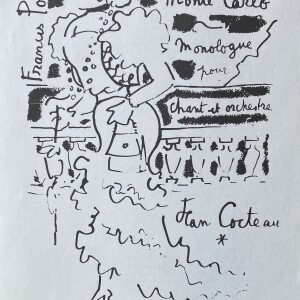 Francis Po
Monte Carlo
Monologue
pour
Chant et orchestre
Jean Cocteau
*